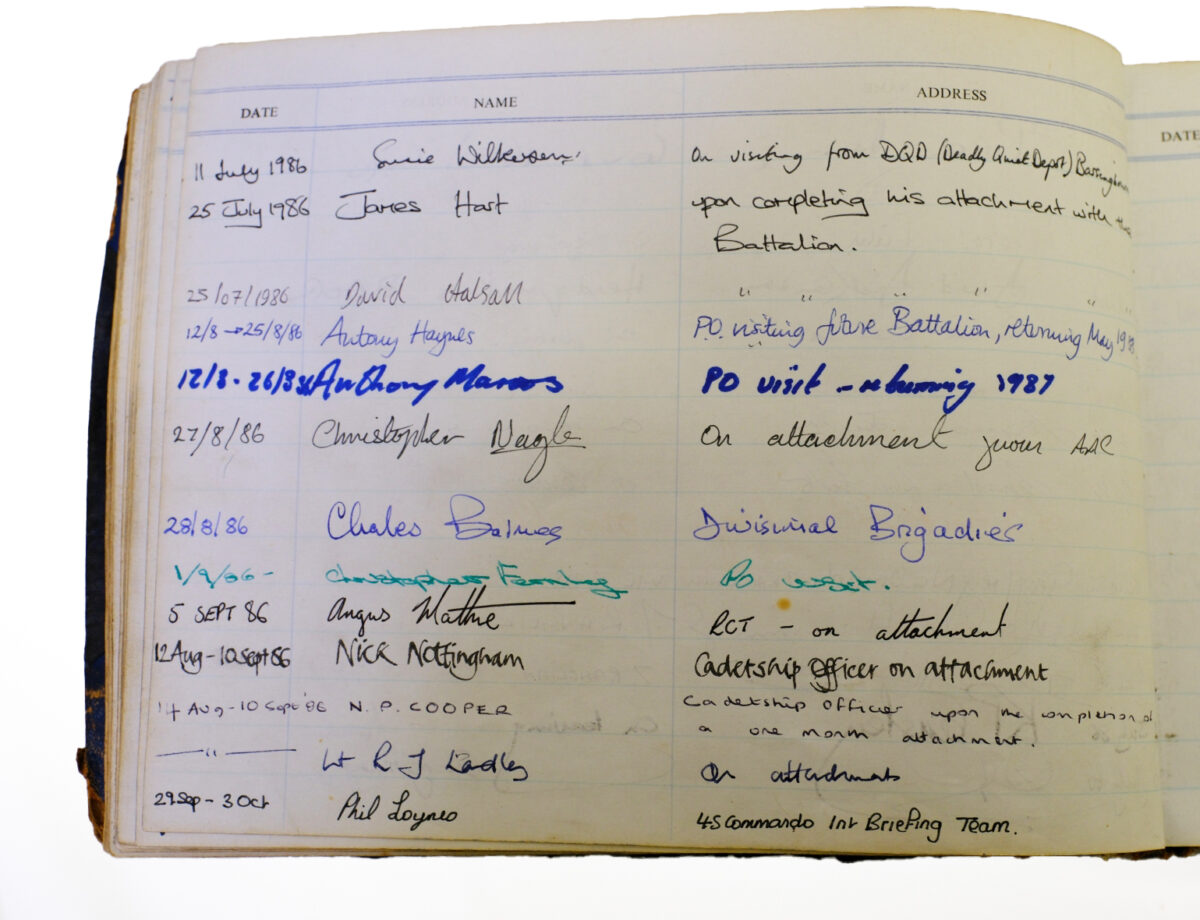 DATE NAME ADDRESS
DATE
11 July 1986 Susie Wilkerson On visiting from DQD (Deadly Quiet Depot)
25 July 1986 James Hart upon completing his attachment with the
Battalion.
25/07/1986 David Halsall " " " " " "
12/8 → 25/8/86 Antony Haynes P.O. visiting future Battalion, returning May
12/8 - 26/8/86 Anthony Marcos PO visit - returning 1987
27/8/86 Christopher Nagle On attachment from
28/8/86 Charles Baines Divisional Brigadier
1/9/86 - Christopher PO visit.
5 SEPT 86 Angus Mathie RCT - on attachment
12 Aug - 10 Sept 86 Nick Nottingham Cadetship Officer on attachment
14 Aug - 10 Sept '86 N. P. COOPER Cadetship Officer upon the completion of
a one month attachment.
—— " —— Lt R J Eadley On attachment
29 Sep - 3 Oct Phil Loynes 45 Commando Int Briefing Team.